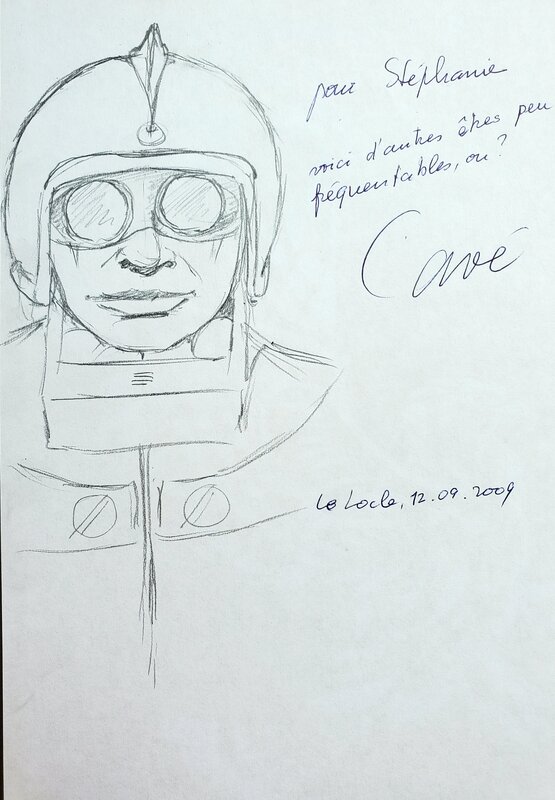 pour Stéphanie
voici d'autres êtres peu
fréquentables, ou ?
Cavé
Le Locle, 12.09.2009